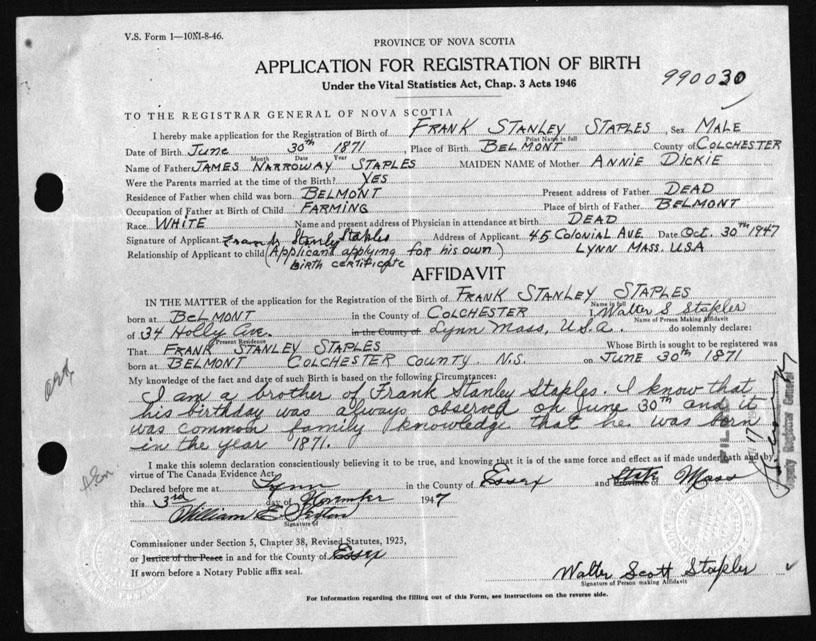 V.S. Form 1—10M-8-46.
PROVINCE OF NOVA SCOTIA
APPLICATION FOR REGISTRATION OF BIRTH
Under the Vital Statistics Act, Chap. 3 Acts 1946
990030
TO THE REGISTRAR GENERAL OF NOVA SCOTIA
I hereby make application for the Registration of Birth of FRANK STANLEY STAPLES, Sex MALE
Print Name in full
Date of Birth June 30th 1871, Place of Birth BELMONT County of COLCHESTER
Month Date Year
Name of Father JAMES NARROWAY STAPLES MAIDEN NAME of Mother ANNIE DICKIE
Were the Parents married at the time of the Birth? YES
Residence of Father when child was born BELMONT Present address of Father DEAD
Occupation of Father at Birth of Child FARMING Place of birth of Father BELMONT
Race WHITE Name and present address of Physician in attendance at birth DEAD
Signature of Applicant Frank Stanley Staples Address of Applicant 45 COLONIAL AVE Date Oct. 30th 1947
Relationship of Applicant to child (Applicant applying for his own LYNN MASS. USA
birth certificate)
AFFIDAVIT
IN THE MATTER of the application for the Registration of the Birth of FRANK STANLEY STAPLES
Name in full
born at BELMONT in the County of COLCHESTER I, Walter S Stapler
Name of Person Making Affidavit
of 34 Holly Ave. in the County of Lynn Mass, U.S.A. do solemnly declare:
Present Residence
That FRANK STANLEY STAPLES Whose Birth is sought to be registered was
born at BELMONT COLCHESTER COUNTY N.S on JUNE 30th 1871
My knowledge of the fact and date of such Birth is based on the following Circumstances:
I am a brother of Frank Stanley Staples. I know that
his birthday was always observed on June 30th and it
was common family knowledge that he was born
in the year 1871.
I make this solemn declaration conscientiously believing it to be true, and knowing that it is of the same force and effect as if made under oath and by
virtue of The Canada Evidence Act.
Declared before me at Lynn in the County of Essex and Province of State Mass
this 3rd day of November 1947
William E. Sexton
Signature of
Commissioner under Section 5, Chapter 38, Revised Statutes, 1923,
or Justice of the Peace in and for the County of Essex
If sworn before a Notary Public affix seal.
Walter Scott Stapler
Signature of Person making Affidavit
For Information regarding the filling out of this Form, see instructions on the reverse side.
Deputy Registrar General